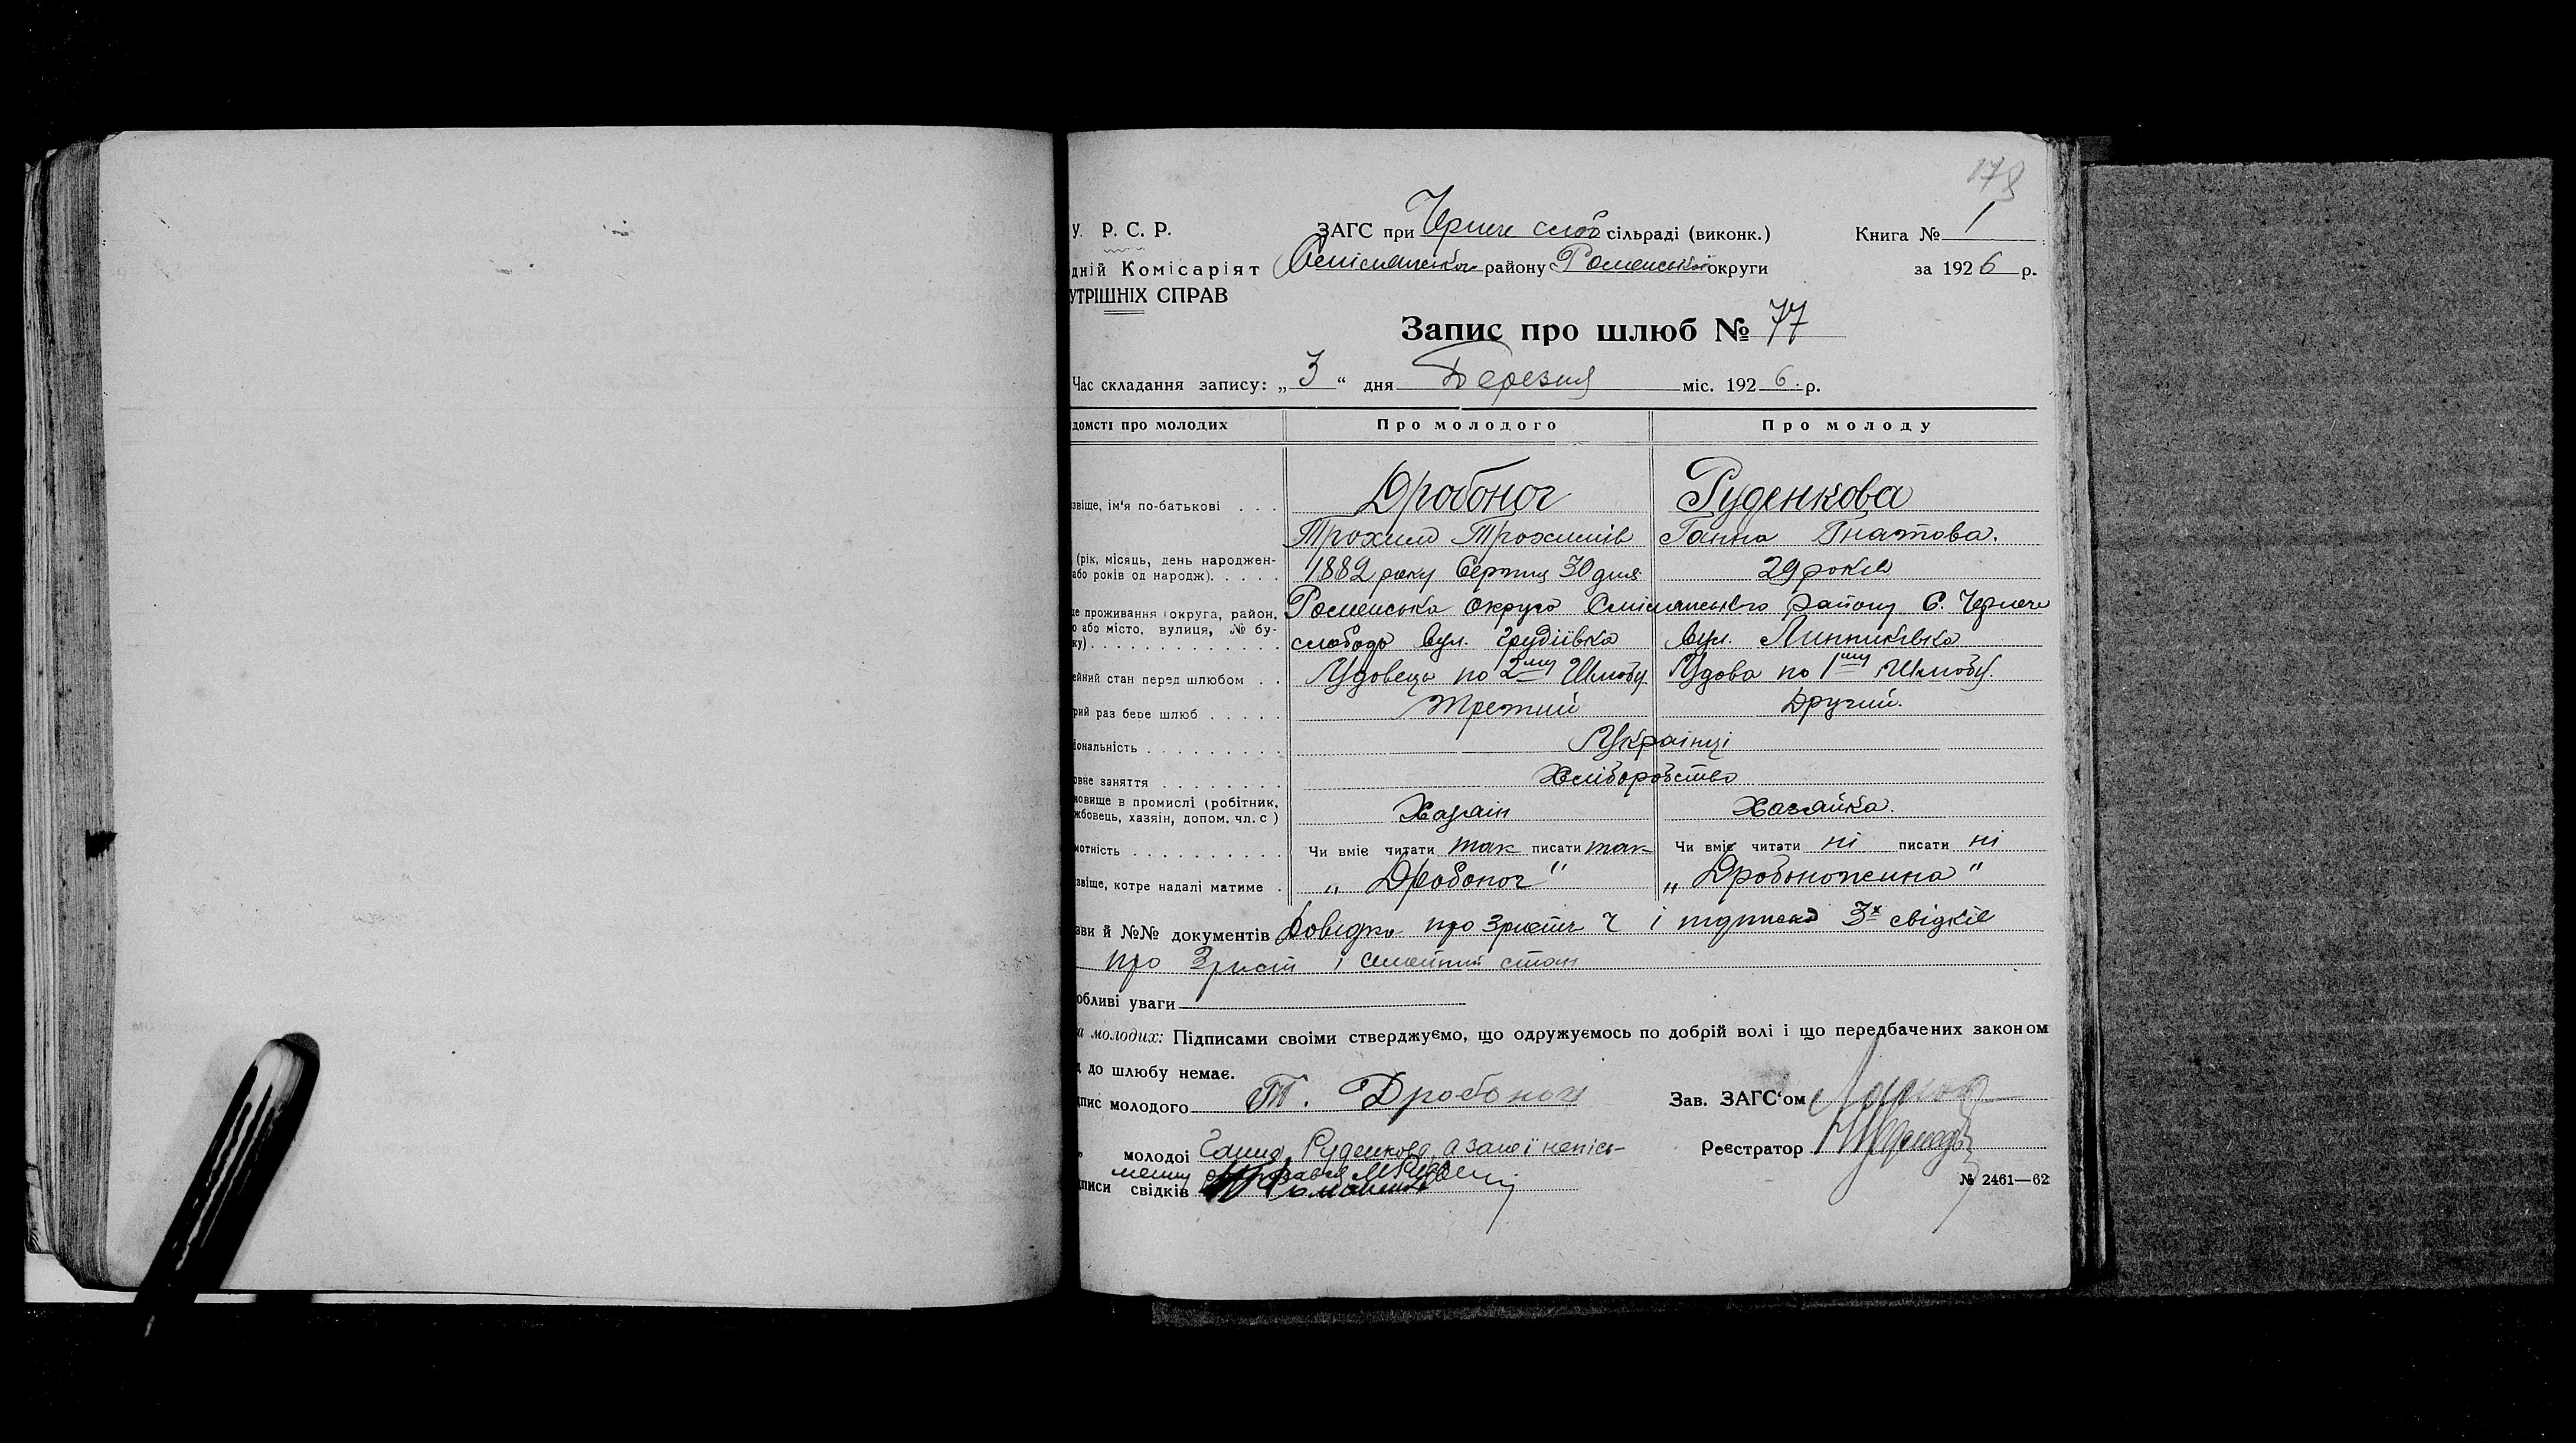 178
У. Р. С. Р. ЗАГС при Чернеч слоб сільраді (виконк.) Книга № 1
дній Комісаріят Смілянського району Роменської округи за 1926 р.
УТРІШНІХ СПРАВ
Запис про шлюб № 77
Час складання запису: „3“ дня Березня міс. 1926. р.
домсті про молодих Про молодого Про молоду
звіще, ім'я по-батькові . . . Дробоног Руденкова
Трохим Трохимів Ганна Гнатова.
(рік, місяць, день народжен-
або років од народж). . . . . 1882 року Серпня 30 дня 29 років
це проживання (округа, район, Роменська округа Смілянського району С. Чернеча
о або місто, вулиця, № бу-
ку) . . . . . . . . . . . . . слобода вул. Грудіївка вул. Линниківка
ейний стан перед шлюбом . . Удовець по 2му Шлюбу Удова по 1му Шлюбу.
рий раз бере шлюб . . . . . Третий Другий.
іональність . . . . . . . . . . Українці
овне заняття . . . . . . . . Хліборобство
новище в промислі (робітник,
жбовець, хазяїн, допом. чл. с) Хазяін Хазяйка.
мотність . . . . . . . . . . Чи вміє читати так писати так Чи вміє читати ні писати ні
звіще, котре надалі матиме . „Дробоног“ „Дробоножина“
зви й №№ документів Довідка про зріст ч і підписка 3х свідків
про Зріст і семейний стан
обливі уваги
а молодих: Підписами своїми стверджуємо, що одружуємось по добрій волі і що передбачених законом
д до шлюбу немає.
дпис молодого Т. Дробоног Зав. ЗАГС'ом
„ молодоі Ганна Руденкова, а за неї непісь- Реєстратор
менну
дписи свідків № 2461—62